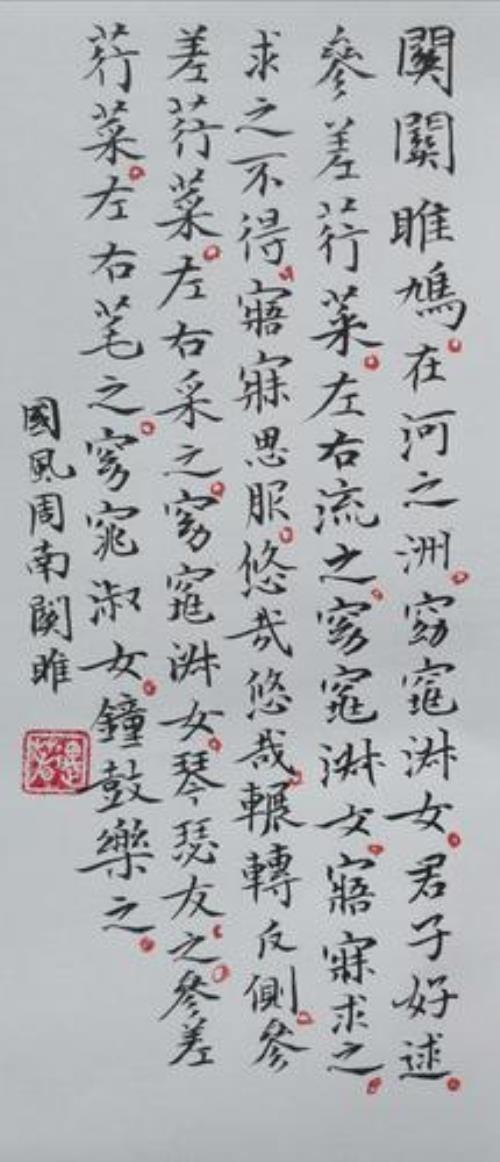 關關雎鳩。在河之洲。窈窕淑女。君子好逑。
參差荇菜。左右流之。窈窕淑女。寤寐求之。
求之不得。寤寐思服。悠哉悠哉。輾轉反側。參
差荇菜。左右采之。窈窕淑女。琴瑟友之。參差
荇菜。左右芼之。窈窕淑女。鐘鼓樂之。
國風周南關雎